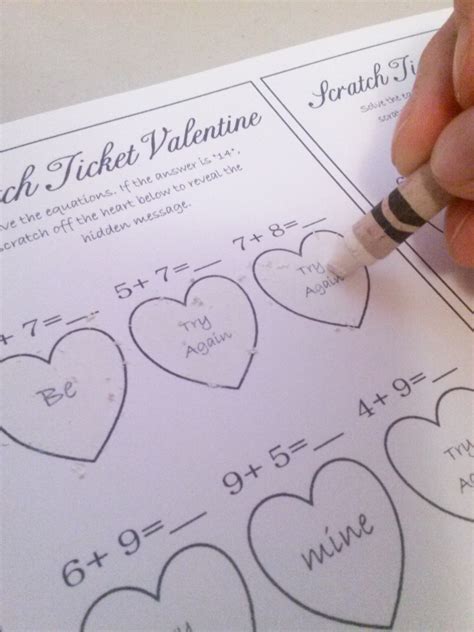 Ticket Valentine
the equations. If the answer is "14",
scratch off the heart below to reveal the
hidden message.
+ 7=__ 5+ 7=__ 7+ 8=__
Be
Try
Again
Try
Again
6+ 9=__ 9+ 5=__ 4+ 9=__
mine
Try
Scratch
Solve the